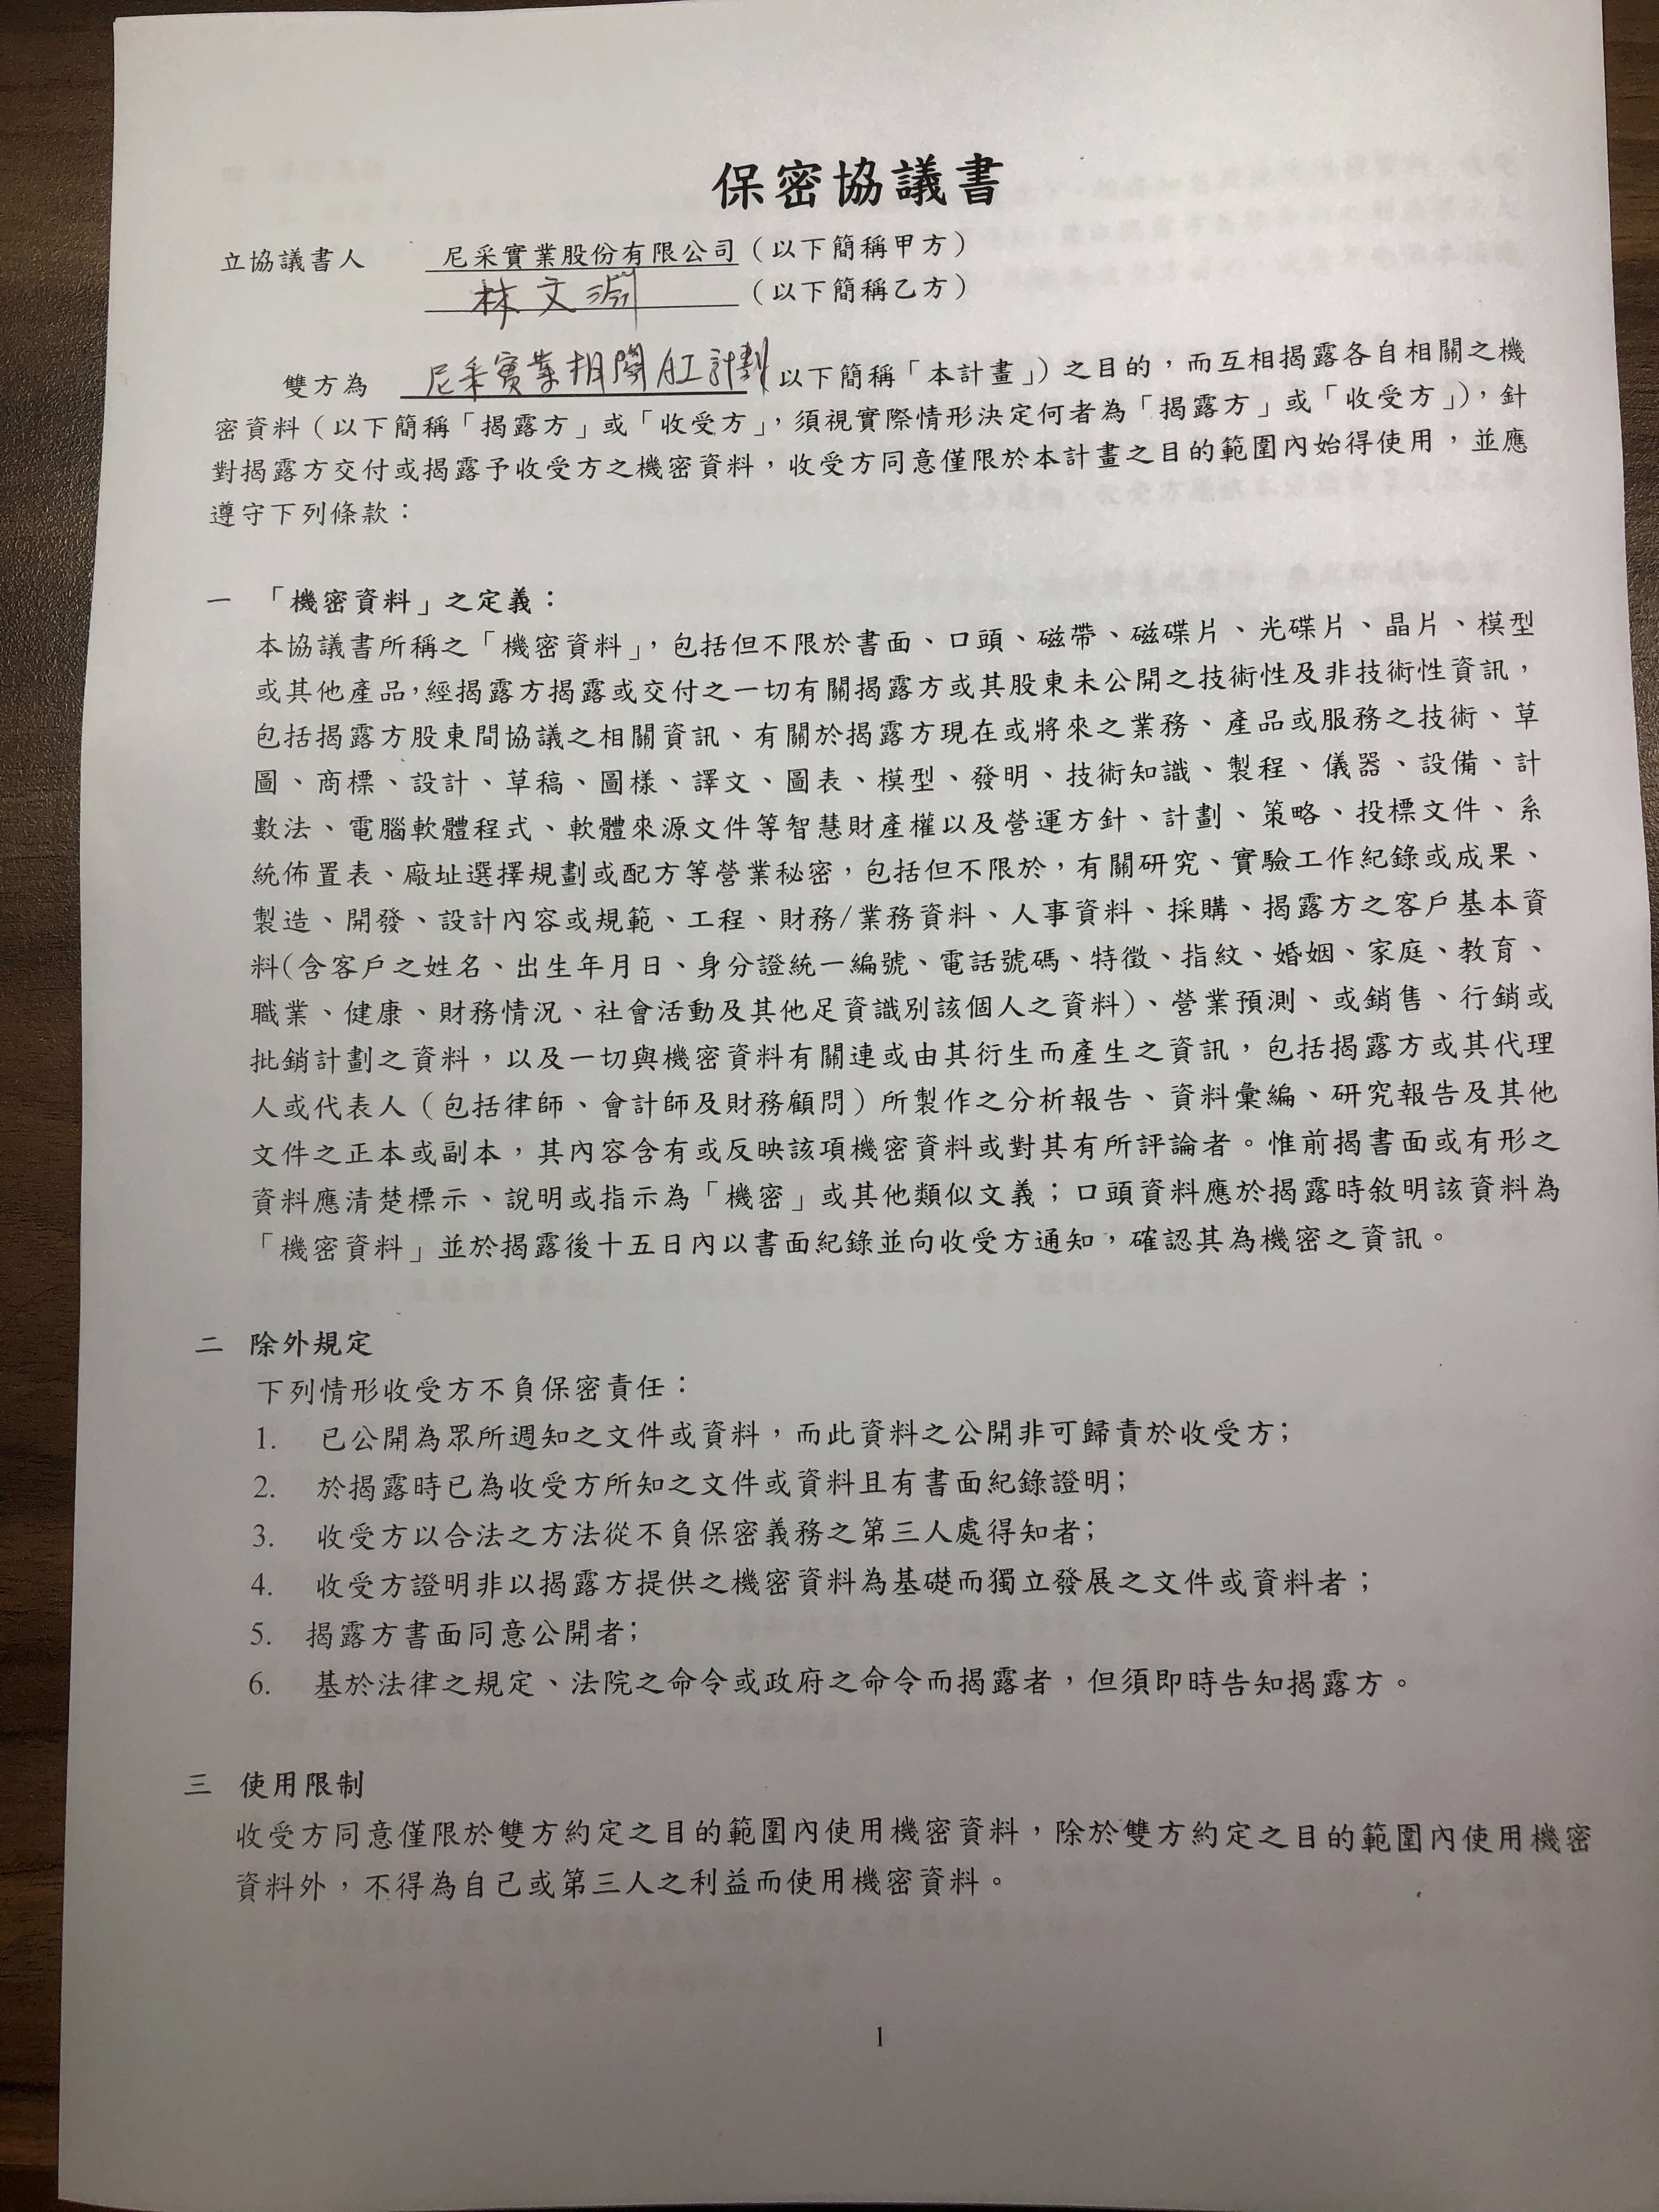 保密協議書
立協議書人 尼采實業股份有限公司（以下簡稱甲方）
林文淵（以下簡稱乙方）
雙方為 尼采實業相關AI計劃 以下簡稱「本計畫」）之目的，而互相揭露各自相關之機
密資料（以下簡稱「揭露方」或「收受方」，須視實際情形決定何者為「揭露方」或「收受方」），針
對揭露方交付或揭露予收受方之機密資料，收受方同意僅限於本計畫之目的範圍內始得使用，並應
遵守下列條款：
一 「機密資料」之定義：
本協議書所稱之「機密資料」，包括但不限於書面、口頭、磁帶、磁碟片、光碟片、晶片、模型
或其他產品，經揭露方揭露或交付之一切有關揭露方或其股東未公開之技術性及非技術性資訊，
包括揭露方股東間協議之相關資訊、有關於揭露方現在或將來之業務、產品或服務之技術、草
圖、商標、設計、草稿、圖樣、譯文、圖表、模型、發明、技術知識、製程、儀器、設備、計
數法、電腦軟體程式、軟體來源文件等智慧財產權以及營運方針、計劃、策略、投標文件、系
統佈置表、廠址選擇規劃或配方等營業秘密，包括但不限於，有關研究、實驗工作紀錄或成果、
製造、開發、設計內容或規範、工程、財務/業務資料、人事資料、採購、揭露方之客戶基本資
料(含客戶之姓名、出生年月日、身分證統一編號、電話號碼、特徵、指紋、婚姻、家庭、教育、
職業、健康、財務情況、社會活動及其他足資識別該個人之資料)、營業預測、或銷售、行銷或
批銷計劃之資料，以及一切與機密資料有關連或由其衍生而產生之資訊，包括揭露方或其代理
人或代表人（包括律師、會計師及財務顧問）所製作之分析報告、資料彙編、研究報告及其他
文件之正本或副本，其內容含有或反映該項機密資料或對其有所評論者。惟前揭書面或有形之
資料應清楚標示、說明或指示為「機密」或其他類似文義；口頭資料應於揭露時敘明該資料為
「機密資料」並於揭露後十五日內以書面紀錄並向收受方通知，確認其為機密之資訊。
二 除外規定
下列情形收受方不負保密責任：
1. 已公開為眾所週知之文件或資料，而此資料之公開非可歸責於收受方；
2. 於揭露時已為收受方所知之文件或資料且有書面紀錄證明；
3. 收受方以合法之方法從不負保密義務之第三人處得知者；
4. 收受方證明非以揭露方提供之機密資料為基礎而獨立發展之文件或資料者；
5. 揭露方書面同意公開者；
6. 基於法律之規定、法院之命令或政府之命令而揭露者，但須即時告知揭露方。
三 使用限制
收受方同意僅限於雙方約定之目的範圍內使用機密資料，除於雙方約定之目的範圍內使用機密
資料外，不得為自己或第三人之利益而使用機密資料。
1